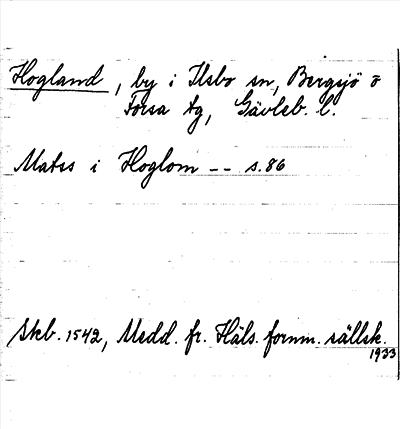 Hogland, by i Ilsbo sn, Bergsjö o
Forsa tg, Gävleb. l.
Matss i Hoglom -- s. 86
Skb. 1542, Medd. fr. Häls. fornm. sällsk.
1933